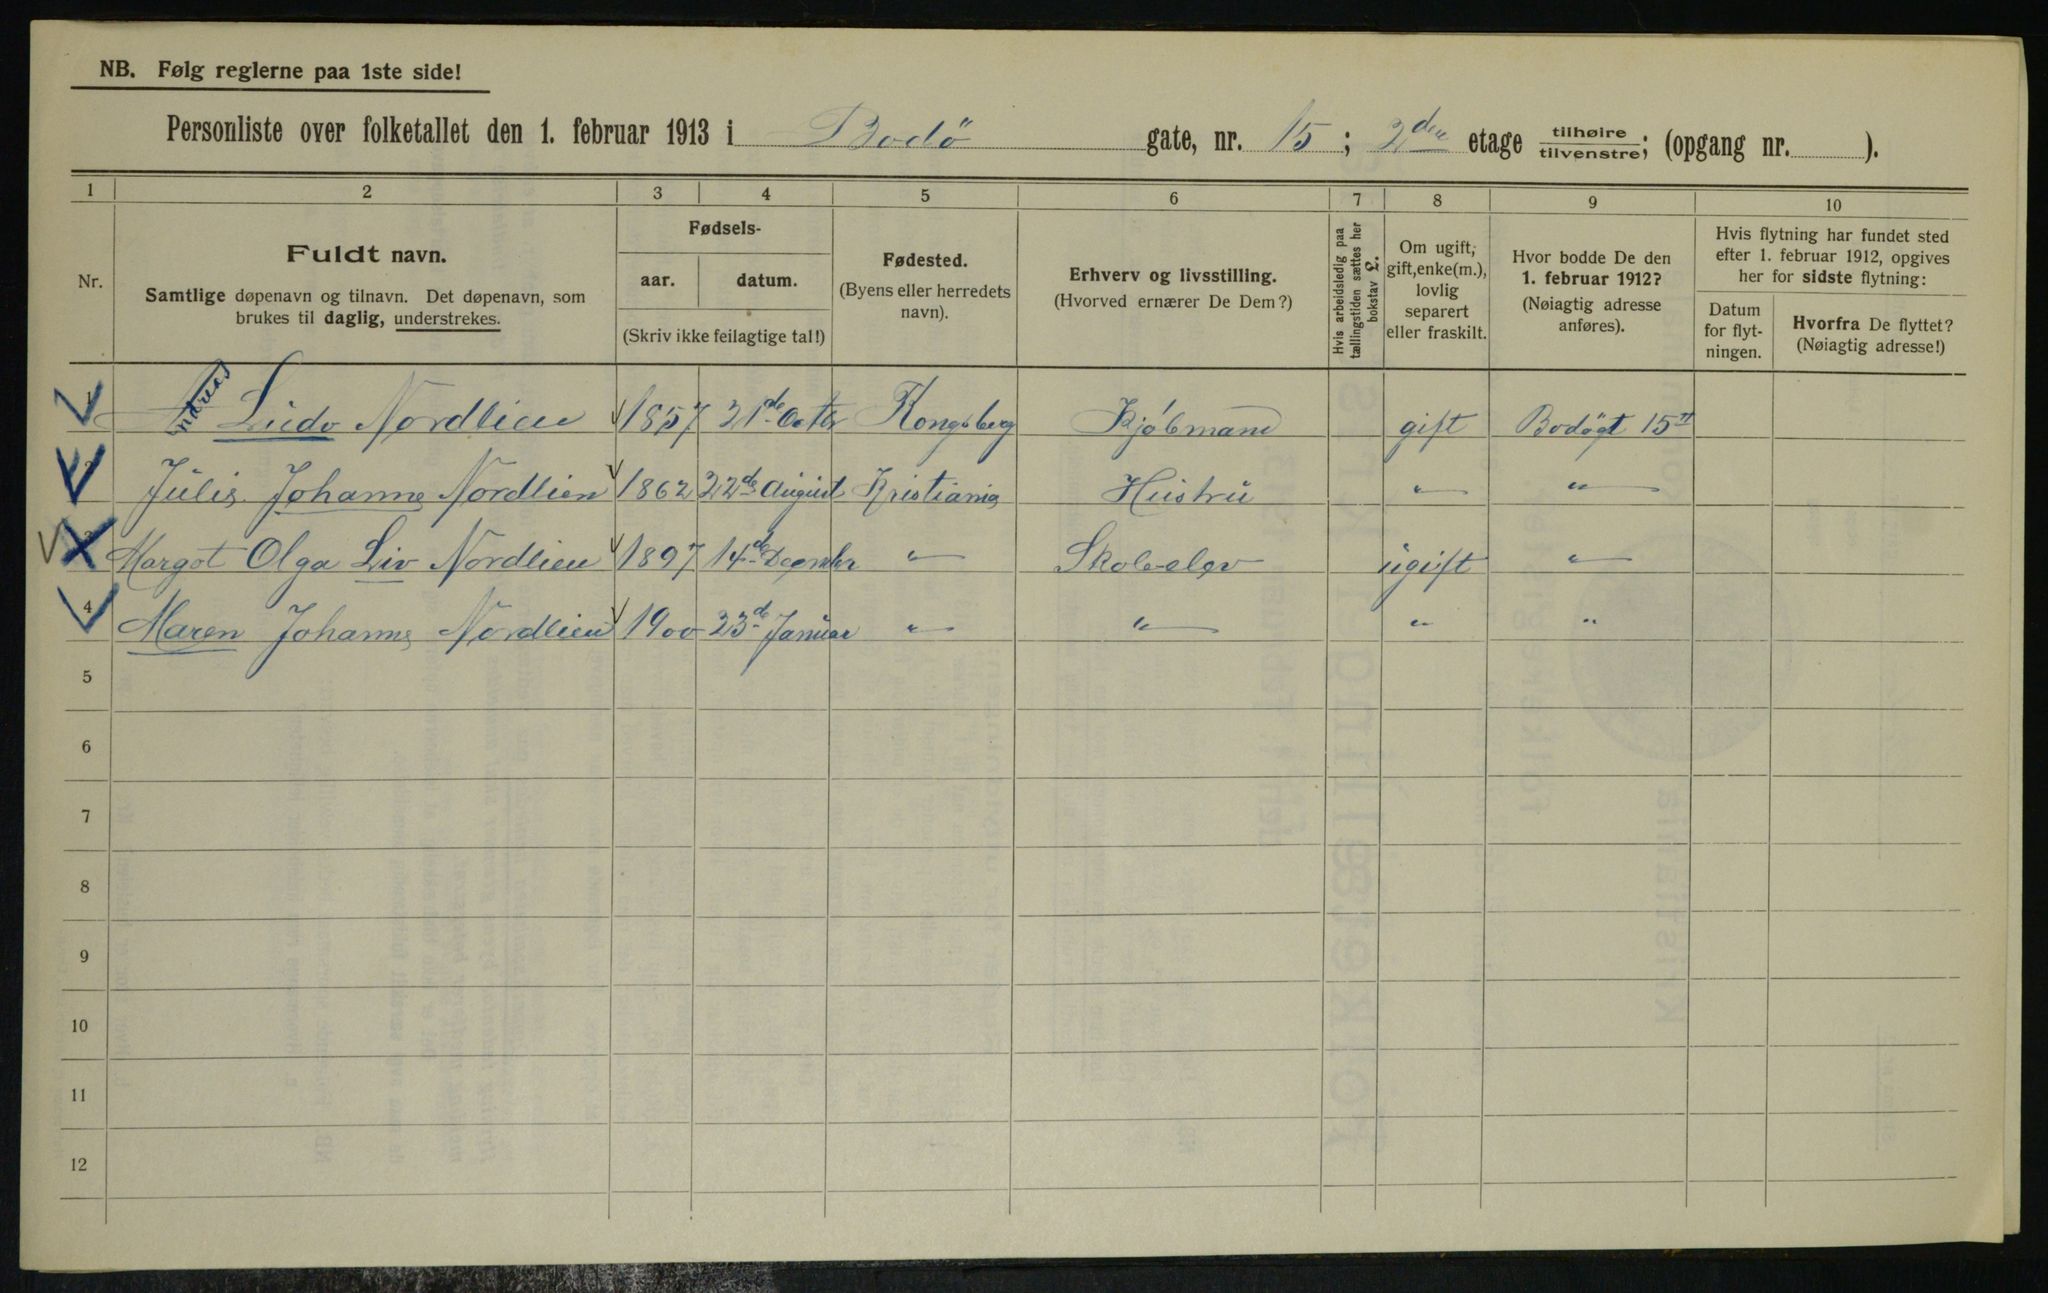 NB. Følg reglerne paa 1ste side!
Personliste over folketallet den 1. februar 1913 i Bodö gate, nr. 15; 2den etage tilhøire/tilvenstre; (opgang nr. ).
1 2 3 4 5 6 7 8 9 10
Nr.
Fuldt navn.
Samtlige døpenavn og tilnavn. Det døpenavn, som
brukes til daglig, understrekes.
Fødsels-
aar. datum.
(Skriv ikke feilagtige tal!)
Fødested.
(Byens eller herredets
navn).
Erhverv og livsstilling.
(Hvorved ernærer De Dem?)
Hvis arbeidsledig paa
tællingstiden sættes her
bokstav L.
Om ugift,
gift, enke(m.),
lovlig
separert
eller fraskilt.
Hvor bodde De den
1. februar 1912?
(Nøiagtig adresse
anføres).
Hvis flytning har fundet sted
efter 1. februar 1912, opgives
her for sidste flytning:
Datum
for flyt-
ningen.
Hvorfra De flyttet?
(Nøiagtig adresse!)
1 Andreas Ludv Nordlien 1857 21de Octbr Kongsberg Kjöbmand gift Bodögt 15II
2 Julie Johanne Nordlien 1862 22de August Kristiania Hustru " "
3 Margot Olga Liv Nordlien 1897 14de Decmber " Skole-elev ugift "
4 Maren Johanne Nordlien 1900 23de Januar " " " "
5
6
7
8
9
10
11
12